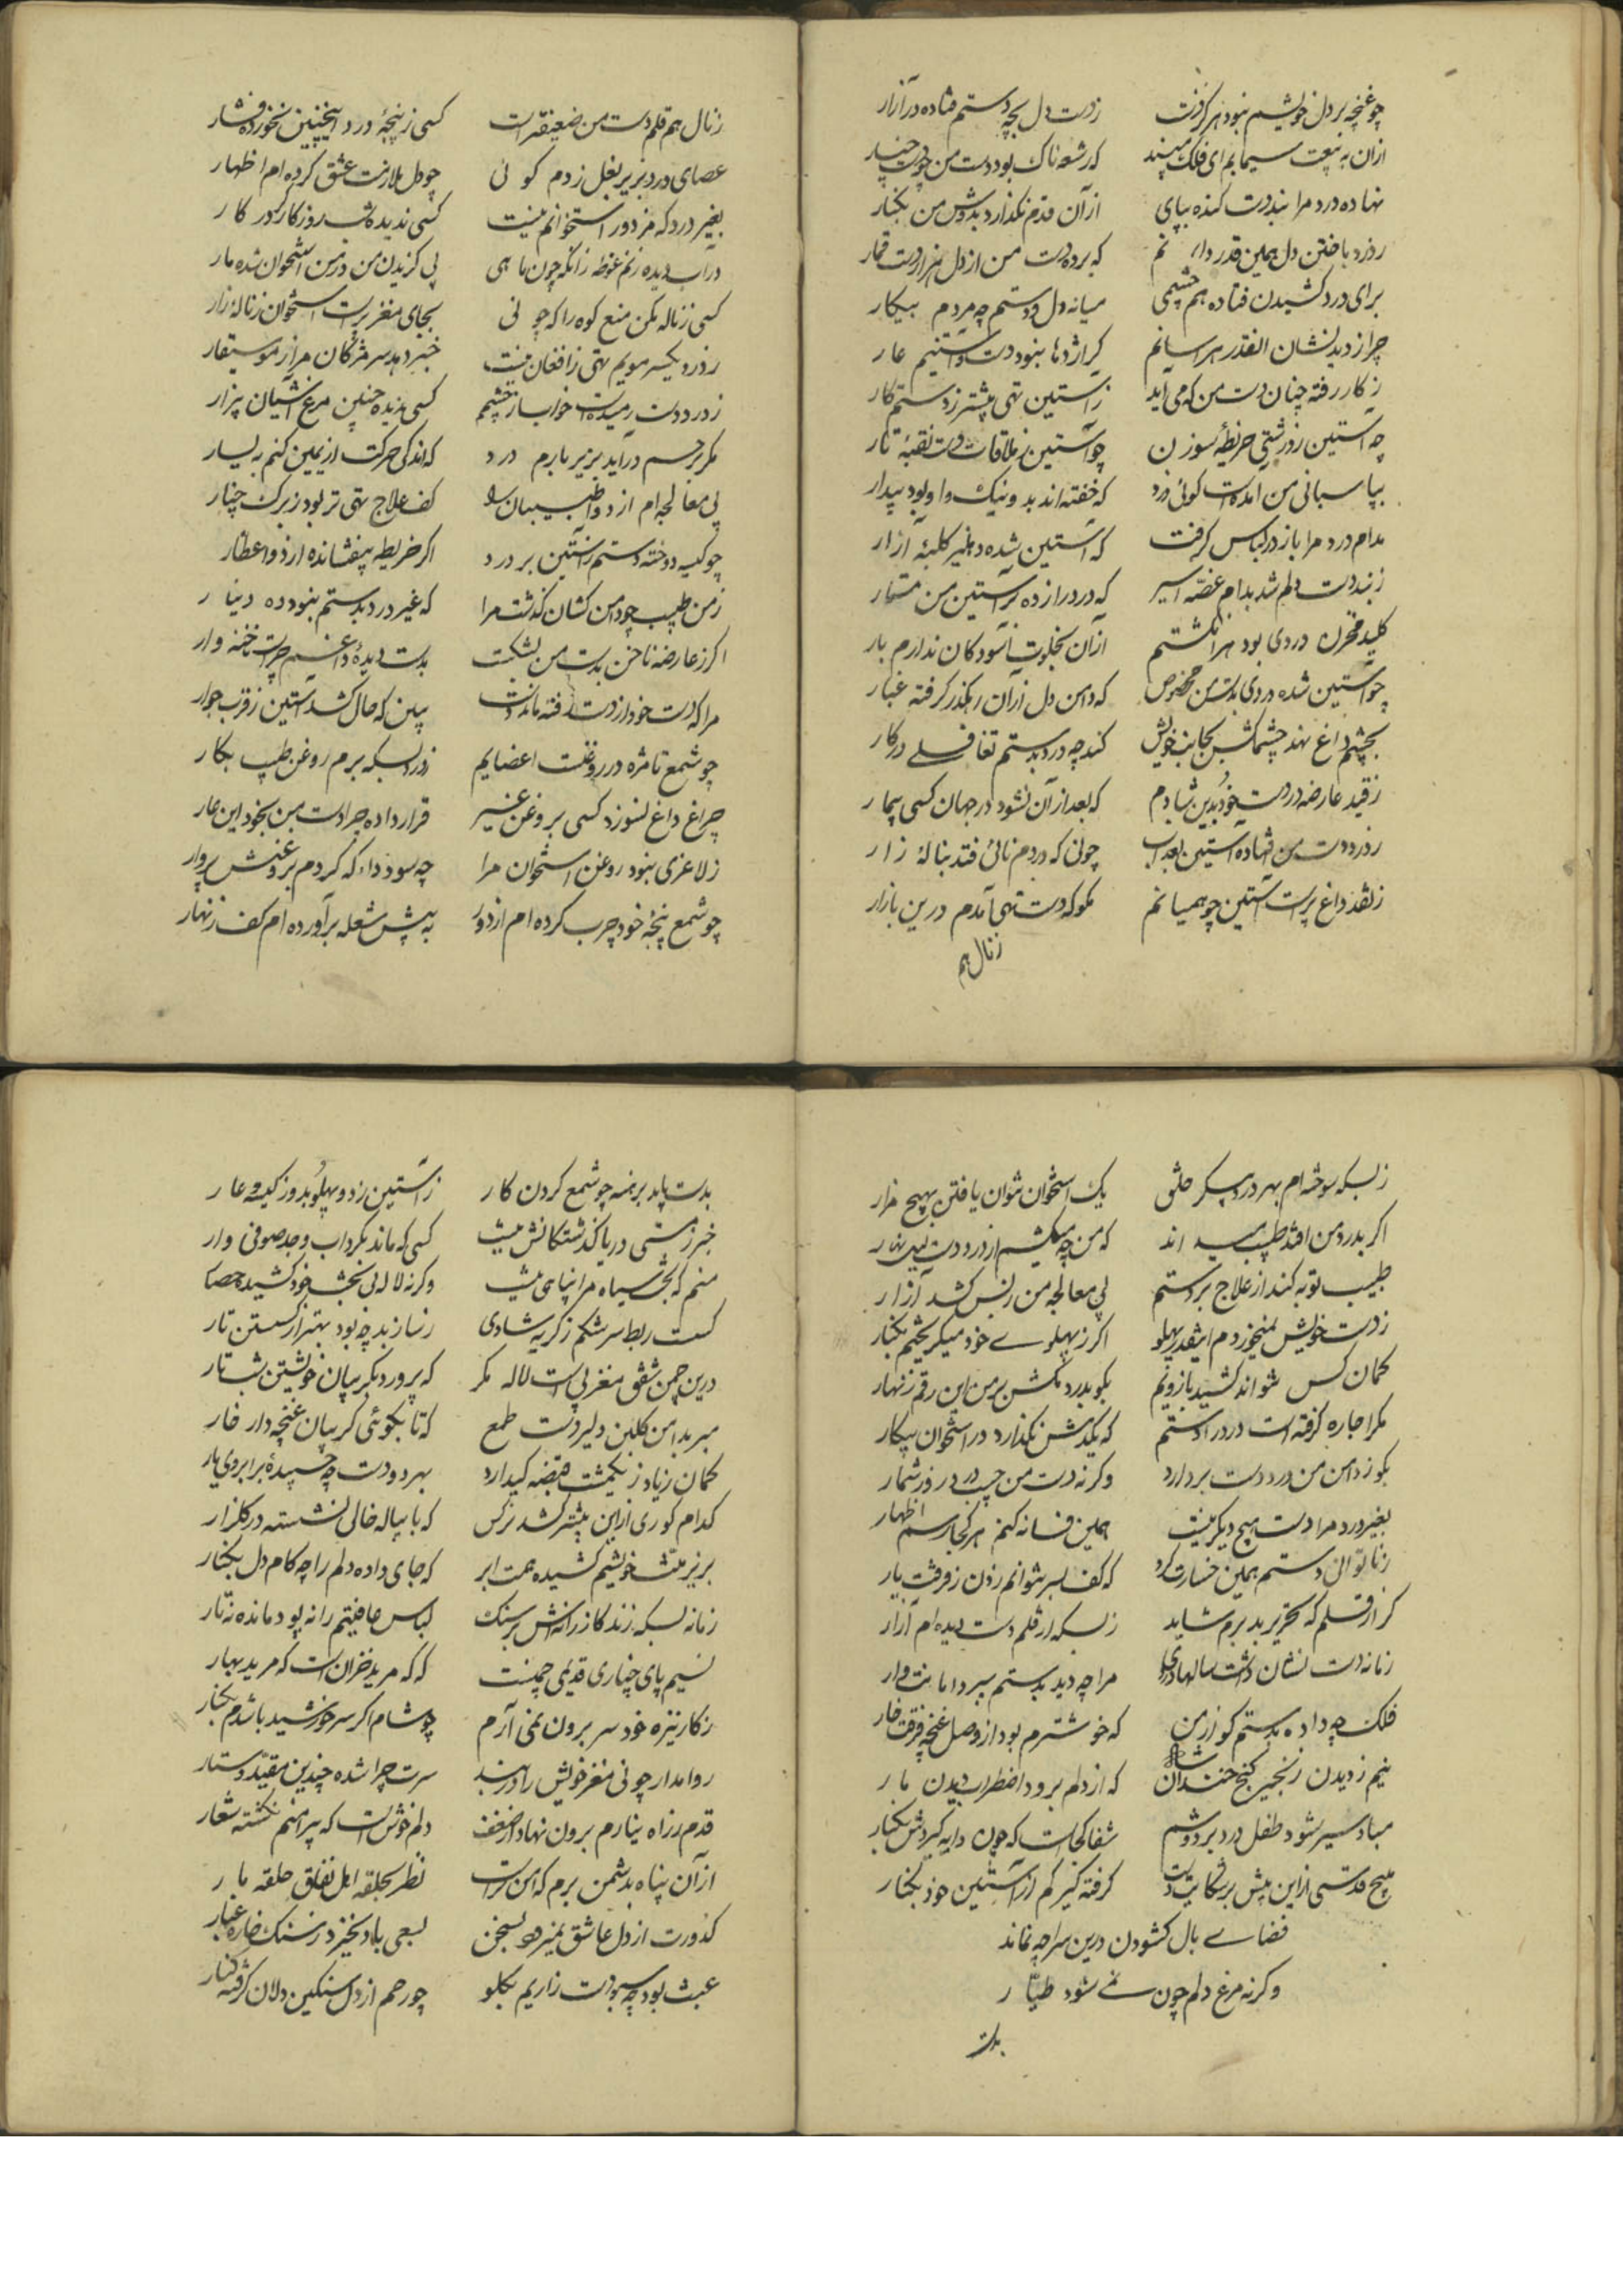 چو غنچه بر دل خویشم نبود هرگز دست زدست دل بچه دستم فتاده در آزار
ازان به تپت سیمابم ای فلک مپسند که رشعه ناک بود دست من چو دست چنار
نهاده درد مرا بند دست کنده بپای از آن قدم نگذارد بدوش من بکبار
ز درد باختن دل همین قدر دانم که برده دست من از دل هزار دست قمار
برای درد کشیدن فتاده هم چشمی میانه دل و دستم چه مردم بیکار
چرا ز دیدنشان اینقدر هراسانم گر اژدها نبود دست و آستینم عار
ز کار رفته چنان دست من که می آید ز آستین تهی پیشتر ز دستم کار
چه آستین ز درشتی خریطه سوزن چو آستین ز ملاقات دست نقبه تار
بپاسبانی من آمده است کوئی درد که خفته اند بد و نیک و او بود بیدار
مدام درد مرا باز در لباس گرفت که آستین شده دهلیز کلبه آزار
ز بند دست دلم شد بدام غصه اسیر که درد را زده بر آستین من مسمار
کلید مخزن دردی بود هر انگشتم از آن بخلوت آسودگان ندارم بار
چو آستین شده دردی بدست من مخصوص که دامن دل از آن رهگذر گرفته غبار
بچشم داغ نهد چشم کش بجانب خویش کند چه درد بدستم تغافلے در کار
ز قید عارضه درد دست خود بدین شادم که بعد از آن نشود در جهان کسی بیمار
ز درد دست من افتاده آستین بعذاب چو نی که در دم نائی فتد بناله زار
ز نقد داغ پرست آستین چو همیانم مگو که دست تهی آمدم درین بازار
ز نال هم
ز نال هم قلم دست من ضعیفترست کسی ز پنجه درد اینچنین نخورده فشار
عصای درد بزیر بغل زدم کوئی چو دل ملازمت عشق کرده ام اظهار
بغیر درد که مزدور استخوانم نیست کسی ندیده که شب روز کار کور کار
در آب دیده زنم غوطه زانکه چون ماهی پی گزیدن من در من استخوان شده مار
کسی ز ناله مکن منع کوه را که چو نی بجای مغز پرست استخوان ز ناله زار
ز درد یکسر مویم تهی ز افغان نیست خبر دهد سر مژگان مرا ز موسیقار
ز درد دست رمیده است خواب از چشمم کسی ندیده چنین مرغ آشیان بیزار
مگر بجسم در آید بزیر بارم درد که اندکی حرکت از یمین کنم به یسار
پی معالجه ام از دوا طبیبان را کف علاج تهی تر بود ز برک چنار
چو کیسه دوخته دستم ز آستین بر درد اگر خریطه بیفشانده از دوا عطار
ز من طبیب چو دامن کشان گذشت مرا که غیر درد بدستم نبود ده دینار
اگر ز عارضه ناخن بدست من بشکست بدست دیده داغم جراحت ناخنه وار
مرا که دست خود از دست رفته ماند دست ببین که حال کشد آستین ز قرب جوار
چو شمع تا مژه در روغنست اعضایم ز درد بسکه برم روغن طبیب بکار
چراغ داغ نسوزد کسی بروغن غیر قرار داده چرا دست من بخود این عار
ز لاغری نبود روغن استخوان مرا چه سود داد که کردم بروغنش پروار
چو شمع پنجه خود چرب کرده ام از دور به پیش شعله برآورده ام کف زنهار
ز بسکه سوخته ام بهر درد پیکر خلق یک استخوان نتوان یافتن بهیچ مزار
اگر بدرد من افتد طبیب میداند که من چه میکشم از درد دست لیل و نهار
طبیب توبه کند از علاج بر دستم پی معالجه من ز بس کشد آزار
ز دست خویش نمیخوردم اینقدر پهلو اگر ز پهلوے خود میگریختم بکنار
کمان کس نتواند کشید بازویم بگو بدرد مکش بر من این رقم زنهار
مگر اجاره گرفته است درد را دستم که یکدمش نگذارد در استخوان بیکار
بگو ز دامن من درد دست بردارد وگرنه دست من جیب درد روز شمار
بغیر درد مرا دست هیچ دیگر نیست همین فسانه کنم هر کجا رسم اظهار
ز ناتوانی دستم همین خسارت کرد که کف بسر نتوانم زدن ز فرقت یار
گر از قلم که تحریر بد برم شاید ز بسکه از قلم دست دیده ام آزار
زمانه دست نشان داشت سالها دردی مرا چه دید بدستم سپرد امانت وار
فلک چه داده بدستم کو از من که خوشترم بود از وصل غنچه فرقت خار
نیم ز دیدن زنجیر گنج خندان شاد که از دلم برود اضطراب دیدن مار
مباد سیر شود طفل درد بر دوشم شفا کجاست که چون دایه گیردش بکنار
هیچ قد ستمی ازین پیش بر شکایت دست گرفته گیر کم از آستین خود بکنار
فضاے بال کشودن درین سراچه نماند
وگرنه مرغ دلم چون نمے شود طیّار
بدست
بدست باید برهنه چو شمع کردن کار ز آستین زد و پهلو بدور کیسه عار
خبر ز مستی دریا گذشتگانش نیست کسی که ماند بگرداب وجد صوفی وار
منم که بخت سیاه مرا پناهی نیست وگرنه لاله پی بخت خود کشیده حصار
گسست ربط سرشکم ز گریه شادی ز ساز بد چه بود بهتر از گسستن تار
درین چمن شفق مغربی است لاله مگر که پرورد بگریبان خویشتن شب تار
مبر بدامن گلبن دلیر دست طمع که تا بگوئی گریبان غنچه دارد خار
کمان زیاد ز یکمشت قبضه کی دارد بهر دو دست چه چسپیده بر ابروی یار
کدام کوری ازین بیشتر کشد نرکس که با پیاله خالی نشسته در گلزار
بزیر منت خویشم کشیده همت ابر که جای داده دلم را چه کام دل بکنار
زمانه بسکه زند گازرانه اش بر سنگ لباس عافیتم را نه پود مانده نه تار
نسیم پای چناری قدیمی چمنست که که مرید خزان است که مرید بهار
ز کار تیره خود سر برون نمی آرم چو شام اگر سر خورشید باشدم بکنار
روا مدار چو نی مغز خویش را در بند سرت چرا شده چندین مقید دستار
قدم ز راه نیارم برون نهاد از ضعف دلم خوش است که پیراهنم نگشته شعار
از آن پناه بدشمن برم که امن تر است نظر بحلقه اهل نفاق حلقه مار
کدورت از دل عاشق نمیرود بسخن بسعی باد نخیزد ز سنگ خاره غبار
عبث بود چه سپوده است زاریم بگلو چو رحم از دل سنگین دلان گرفته کنار